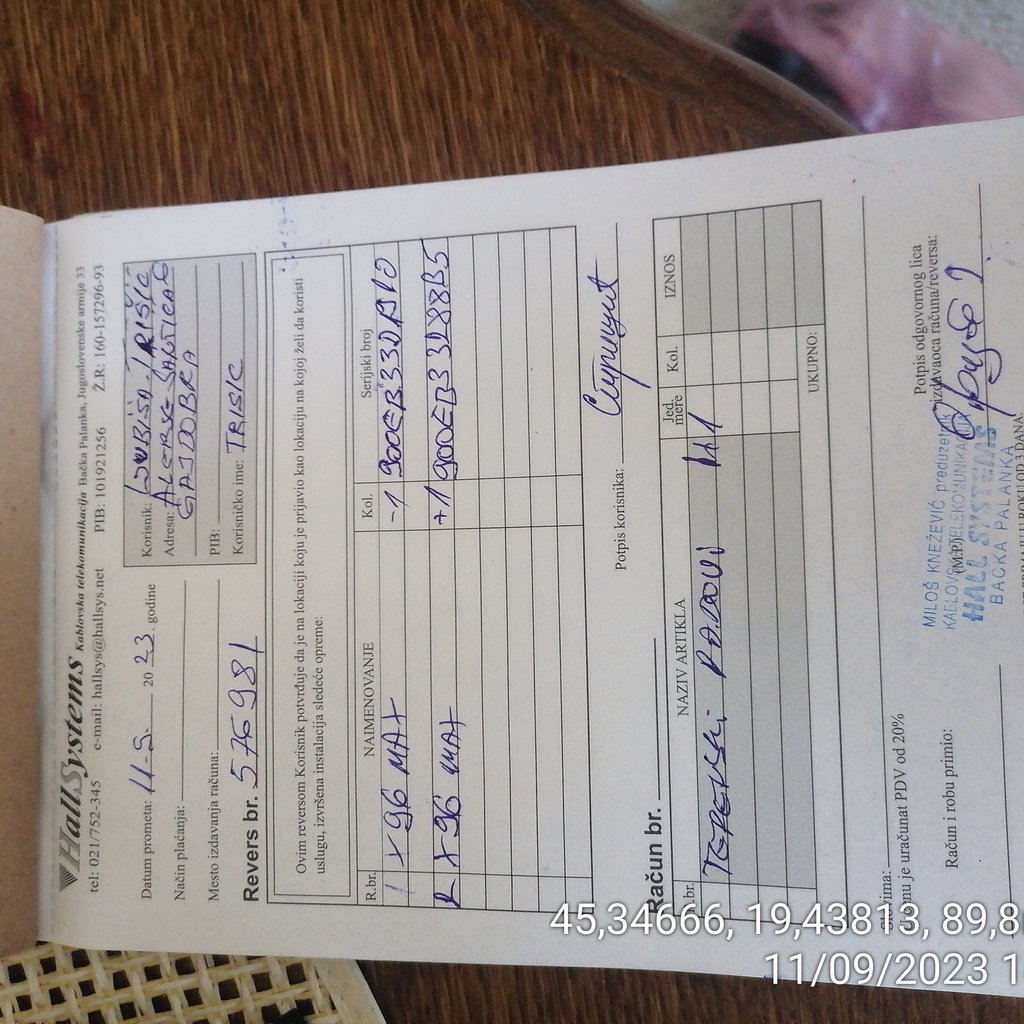 HallSystems Kablovska telekomunikacija Bačka Palanka, Jugoslovenske armije 33
tel: 021/752-345 e-mail: hallsys@hallsys.net PIB: 101921256 Ž.R: 160-157296-93
Datum prometa: 11-9- 20 23. godine
Način plaćanja:
Mesto izdavanja računa:
Korisnik: LJUBIŠA TRIŠIĆ
Adresa:
GAJDOBRA
PIB:
Korisničko ime: TRISIC
Revers br. 576981
Ovim reversom Korisnik potvrđuje da je na lokaciji koju je prijavio kao lokaciju na kojoj želi da koristi
uslugu, izvršena instalacija sledeće opreme:
R.br. NAIMENOVANJE Kol. Serijski broj
1 X96 MAX -1
2 X96 MAX +1 900EB33288B5
Potpis korisnika:
Račun br.
R.br. NAZIV ARTIKLA Jed. mere Kol. IZNOS
TERENSKI RADOVI
UKUPNO:
Slovima:
U cenu je uračunat PDV od 20%
Račun i robu primio:
(M.P.)
Potpis odgovornog lica
izdavaoca računa/reversa:
MILOŠ KNEŽEVIĆ preduzetnik
HALL SYSTEMS
BAČKA PALANKA
U ROKU OD 3 DANA.
45,34666, 19,43813, 89,8
11/09/2023 1